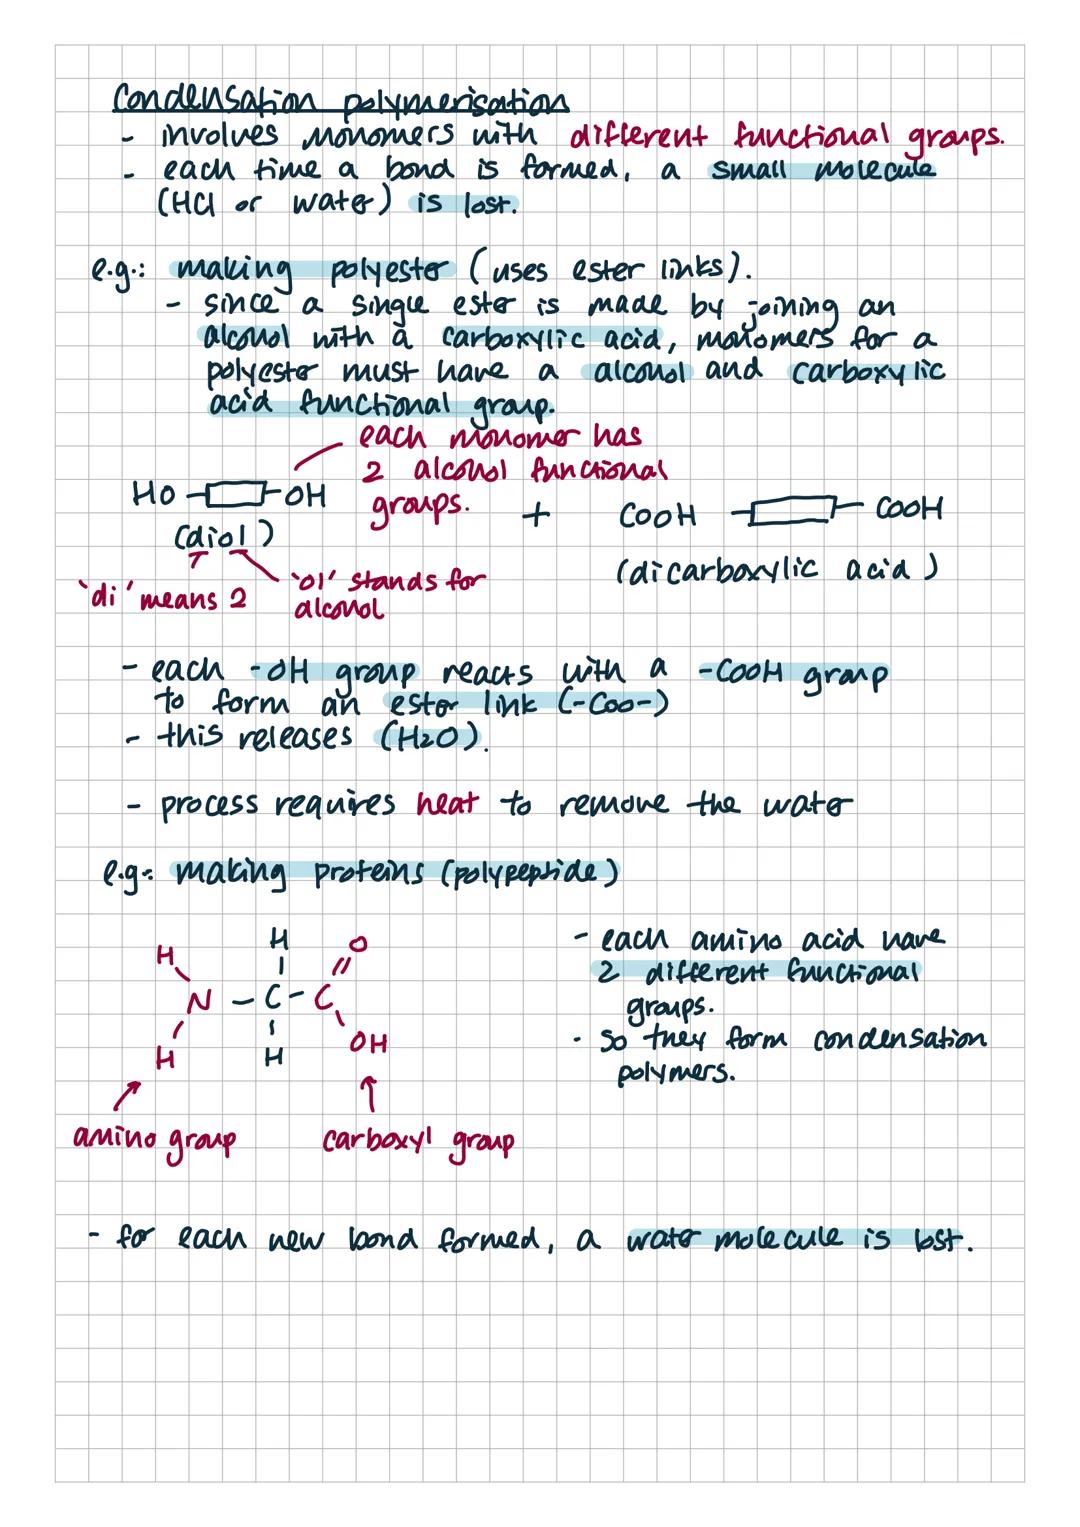 Condensation polymerisation
- involves monomers with different functional groups.
- each time a bond is formed, a small molecule
(HCl or water) is lost.
e.g.: making polyester (uses ester links).
- since a single ester is made by joining an
alcohol with a carboxylic acid, monomers for a
polyester must have a alcohol and carboxylic
acid functional group.
each monomer has
2 alcohol functional
groups.
HO OH + COOH COOH
(diol) (dicarboxylic acid)
'di' means 2
'ol' stands for
alcohol
- each -OH group reacts with a -COOH group
to form an ester link (-COO-)
- this releases (H2O).
- process requires heat to remove the water
e.g.: making proteins (polypeptide)
H H O
N - C - C
H H OH
amino group carboxyl group
- each amino acid have
2 different functional
groups.
- so they form condensation
polymers.
- for each new bond formed, a water molecule is lost.